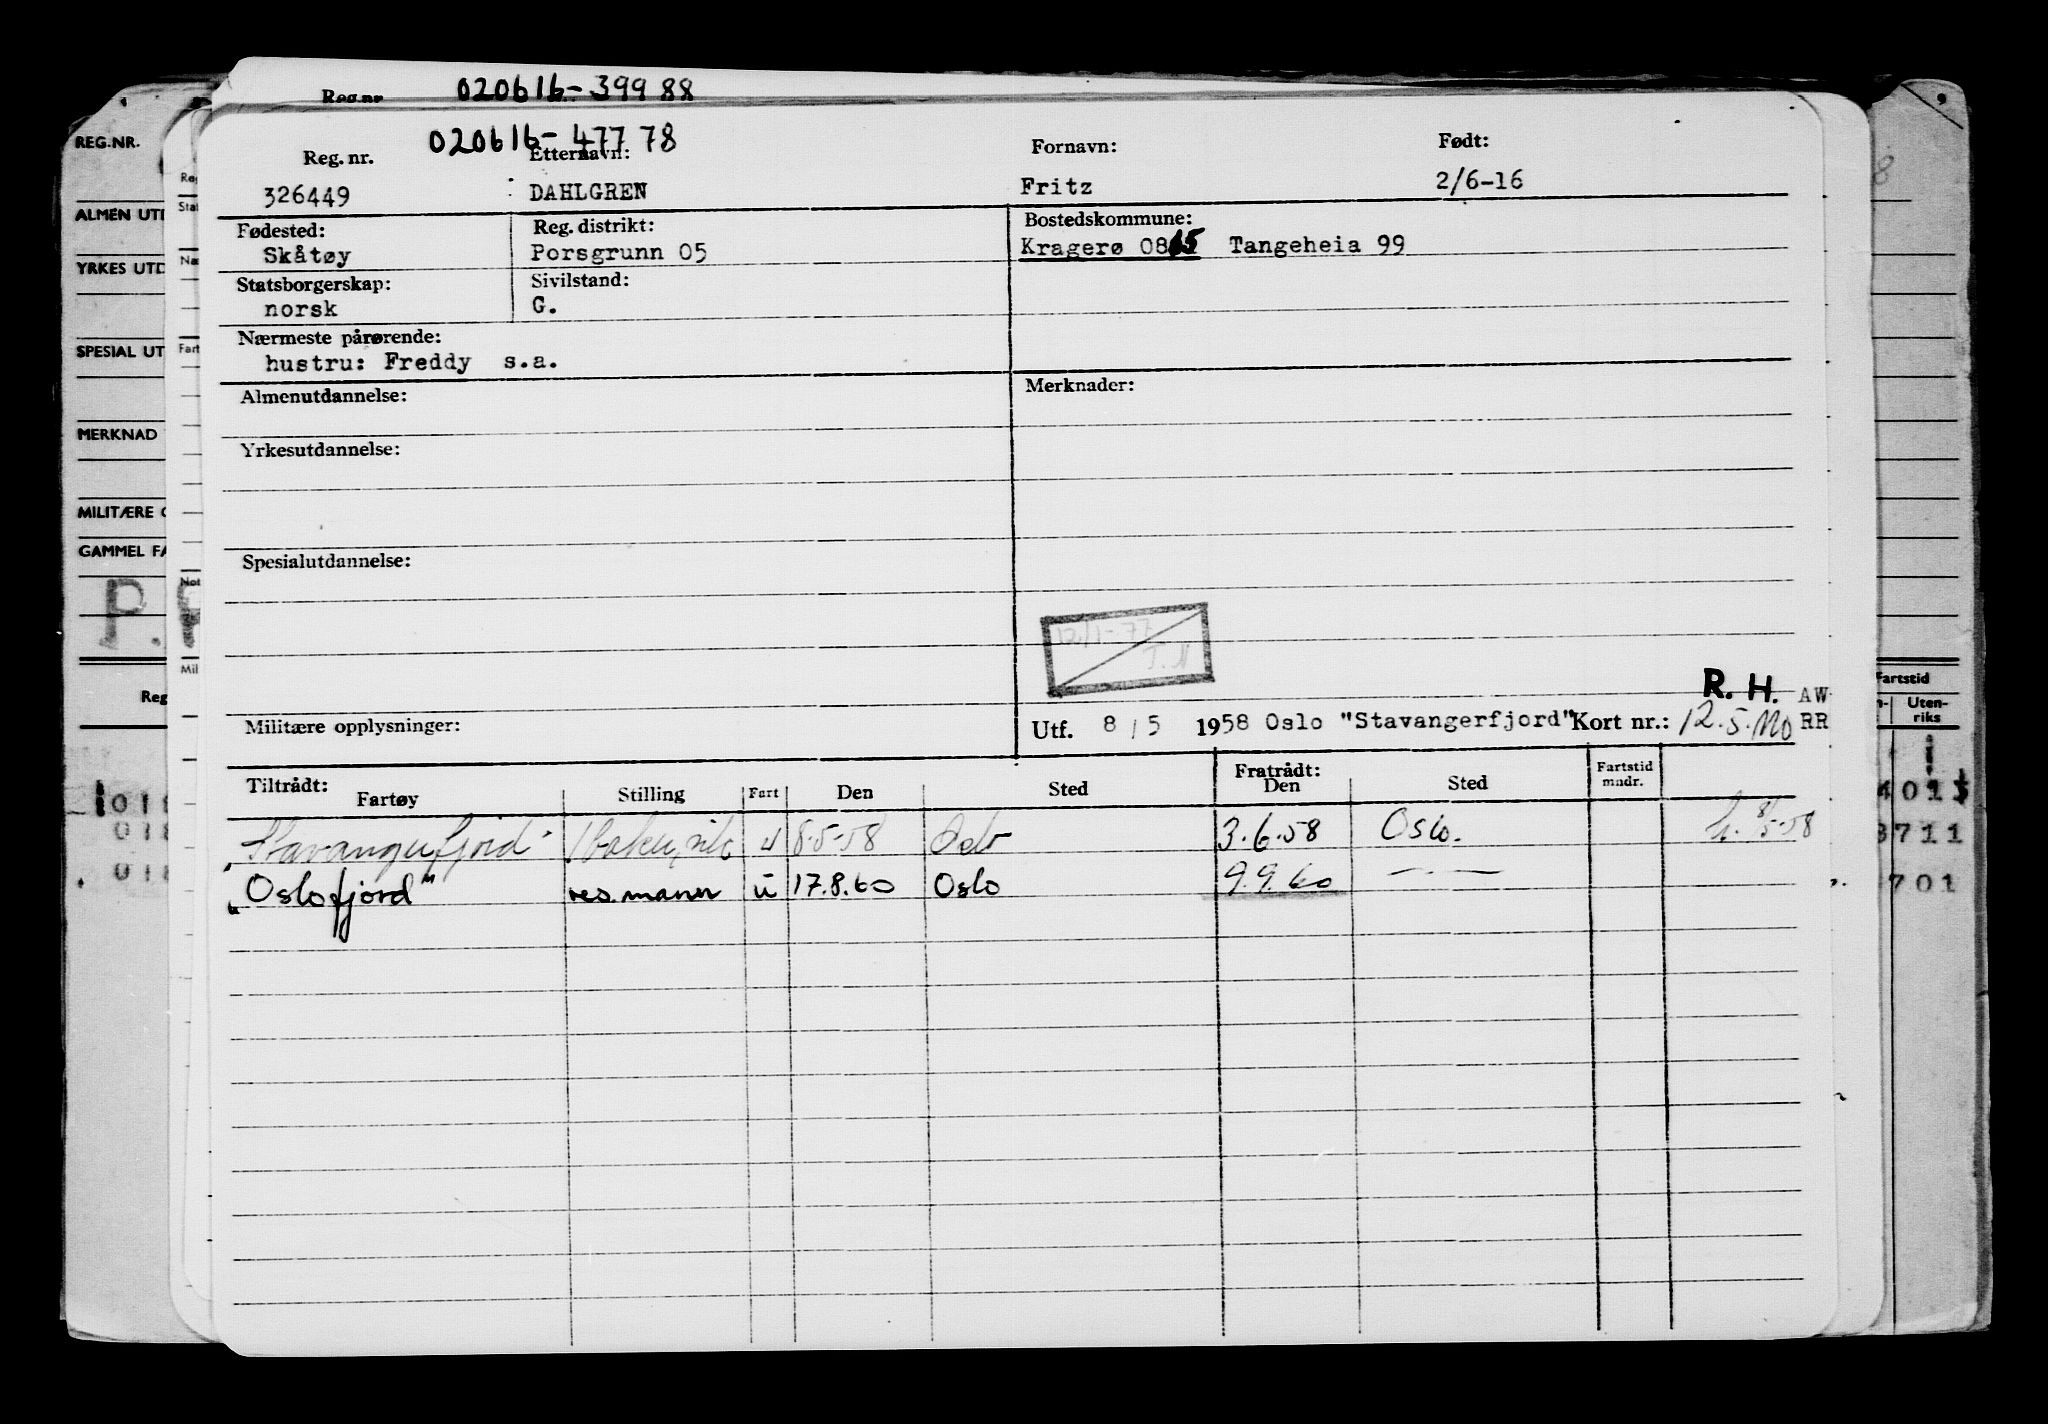 Reg.nr 020616-39988
020616-47778
Reg. nr. Etternavn: Fornavn: Født:
326449 DAHLGREN Fritz 2/6-16
Fødested: Reg. distrikt: Bostedskommune:
Skåtøy Porsgrunn 05 Kragerø 0815 Tangeheia 99
Statsborgerskap: Sivilstand:
norsk G.
Nærmeste pårørende:
hustru: Freddy s.a.
Almenutdannelse: Merknader:
Yrkesutdannelse:
Spesialutdannelse:
12/1-77
T.N
R. H. AW
Militære opplysninger: Utf. 8/5 1958 Oslo "Stavangerfjord" Kort nr.: 12.5. RR
Tiltrådt: Fratrådt:
Fartøy Stilling Fart Den Sted Den Sted Fartstid mndr.
"Stavangerfjord" u 8-5-58 Oslo 3.6.58 Oslo. 8/5-58
"Oslofjord" res.mann u 17.8.60 Oslo 9.9.60 — " —
REG.NR.
ALMEN UTD
YRKES UTD
SPESIAL UT
MERKNAD
MILITÆRE O
GAMMEL FA
P.
Reg
011
018
018
Reg
Stat
Næ
Fart
Not
Mil
8
Fartstid
n- Uten-
riks
4013
3711
701